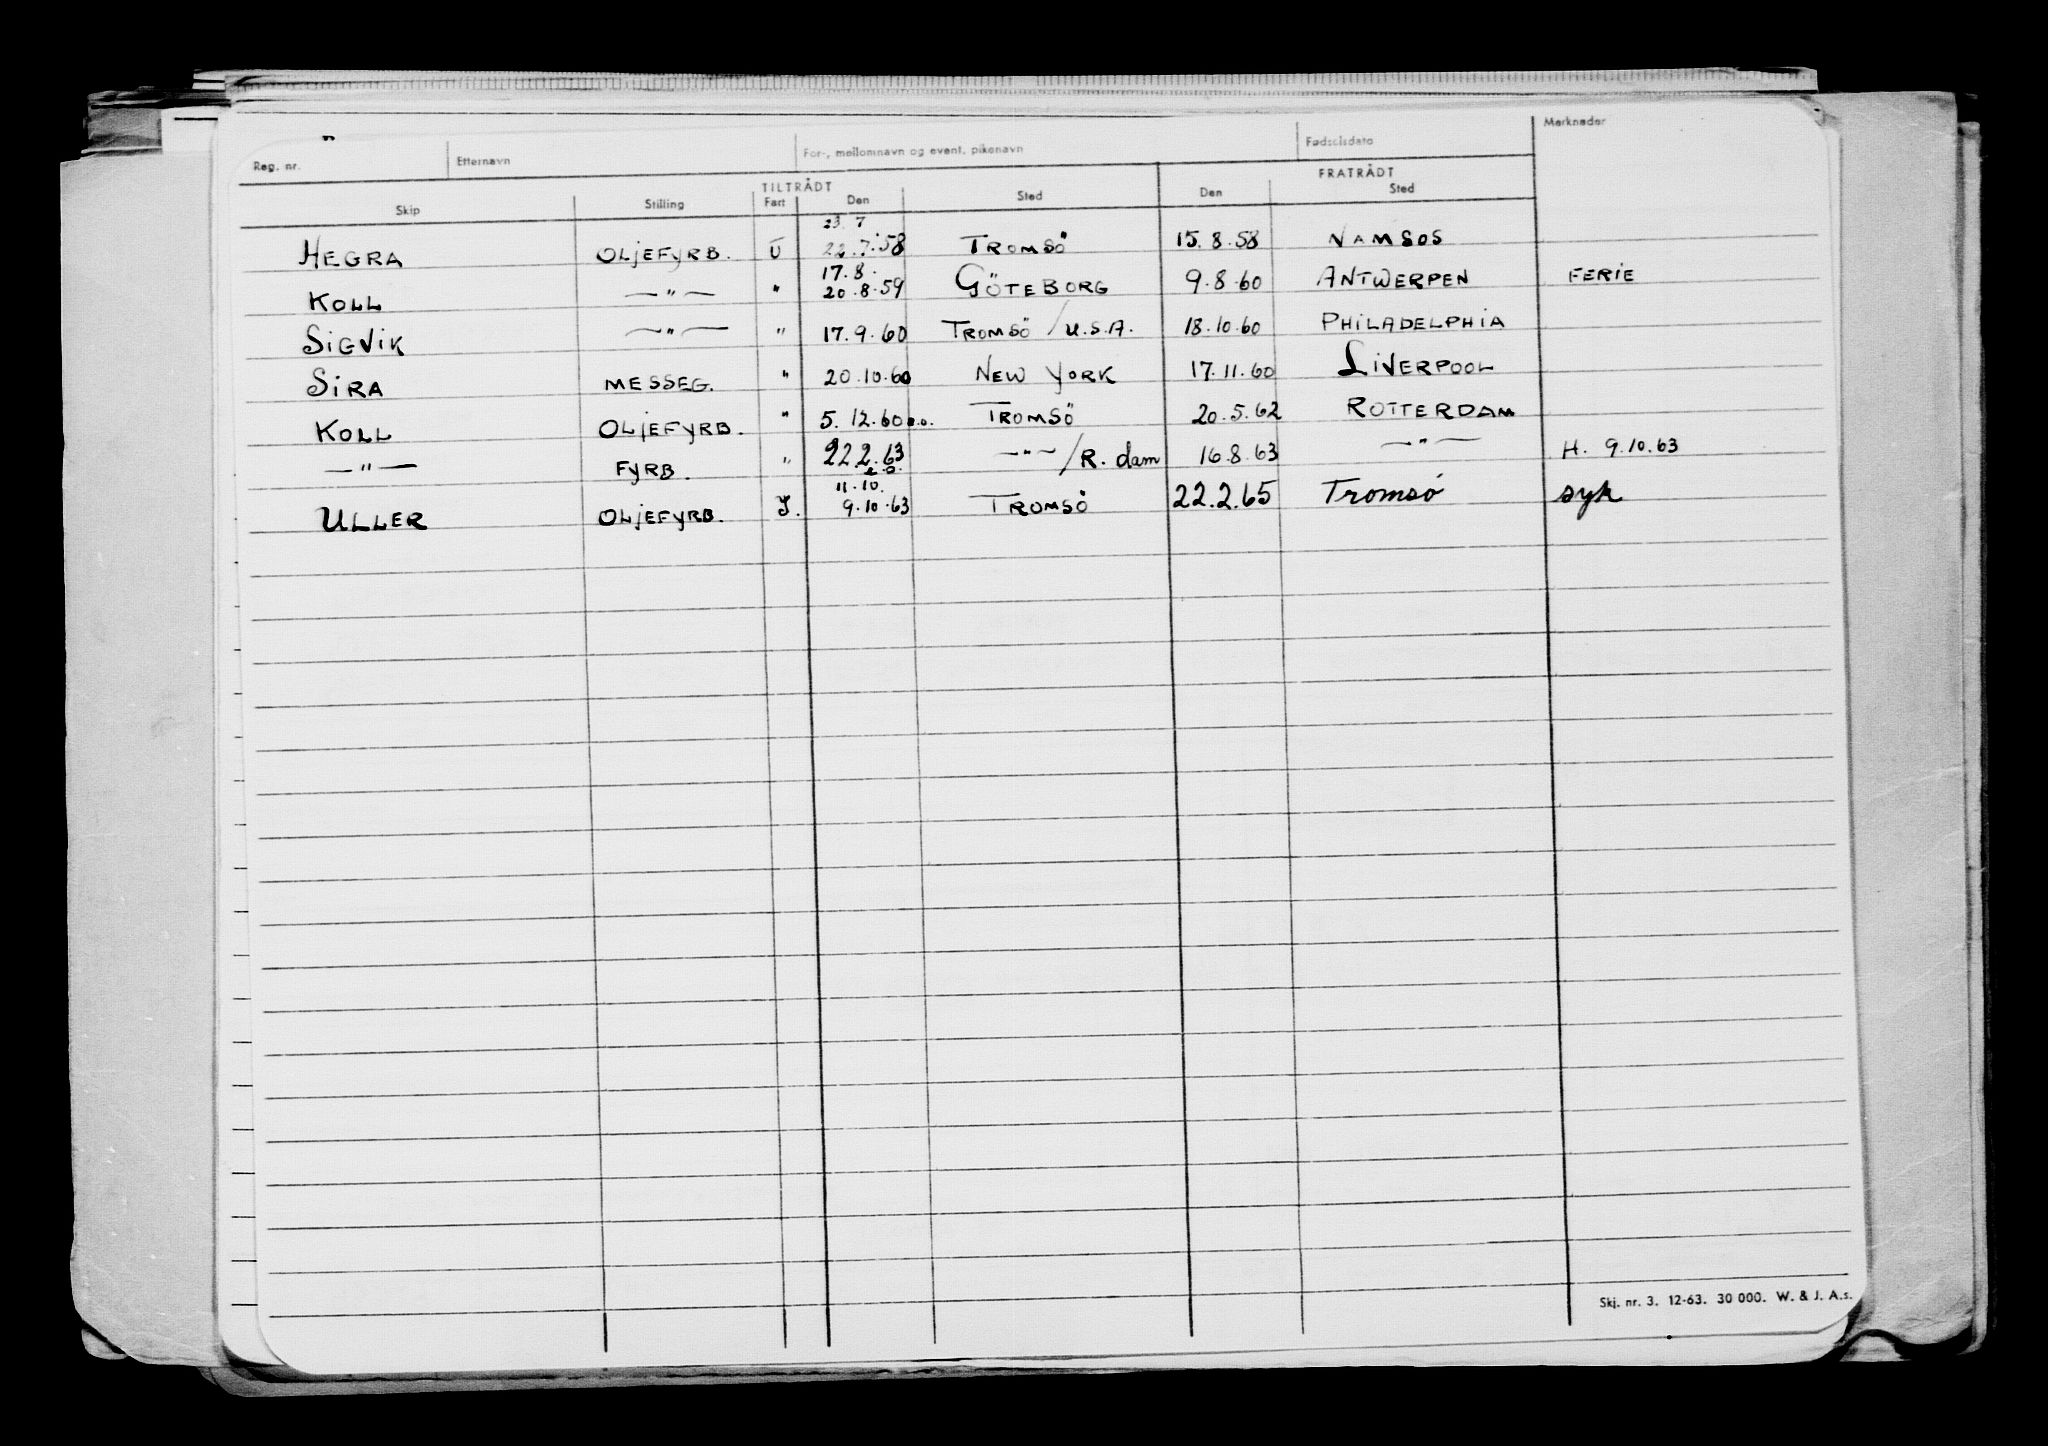 Reg. nr. Etternavn For-, mellomnavn og event. pikenavn Fødselsdato Merknader
TILTRÅDT FRATRÅDT
Skip Stilling Fart Den Sted Den Sted
23. 7
HEGRA OLJEFYRB. U 22.7.58 TROMSÖ 15.8.58 NAMSOS
17.8.
KOLL —"— " 20.8.59 GÖTEBORG 9.8.60 ANTWERPEN FERIE
SIGVIK —"— " 17.9.60 TROMSÖ / U.S.A. 18.10.60 PHILADELPHIA
SIRA MESSEG. " 20.10.60 NEW YORK 17.11.60 LIVERPOOL
KOLL OLJEFYRB. " 5.12.60 o.o. TROMSÖ 20.5.62 ROTTERDAM
—"— FYRB. " 22.2.63 —"— / R.dam 16.8.63 —"— H. 9.10.63
11.10.
ULLER OLJEFYRB. J. 9.10.63 TROMSÖ 22.2.65 Tromsö syk
Skj. nr. 3. 12-63. 30 000. W. & J. A.s.